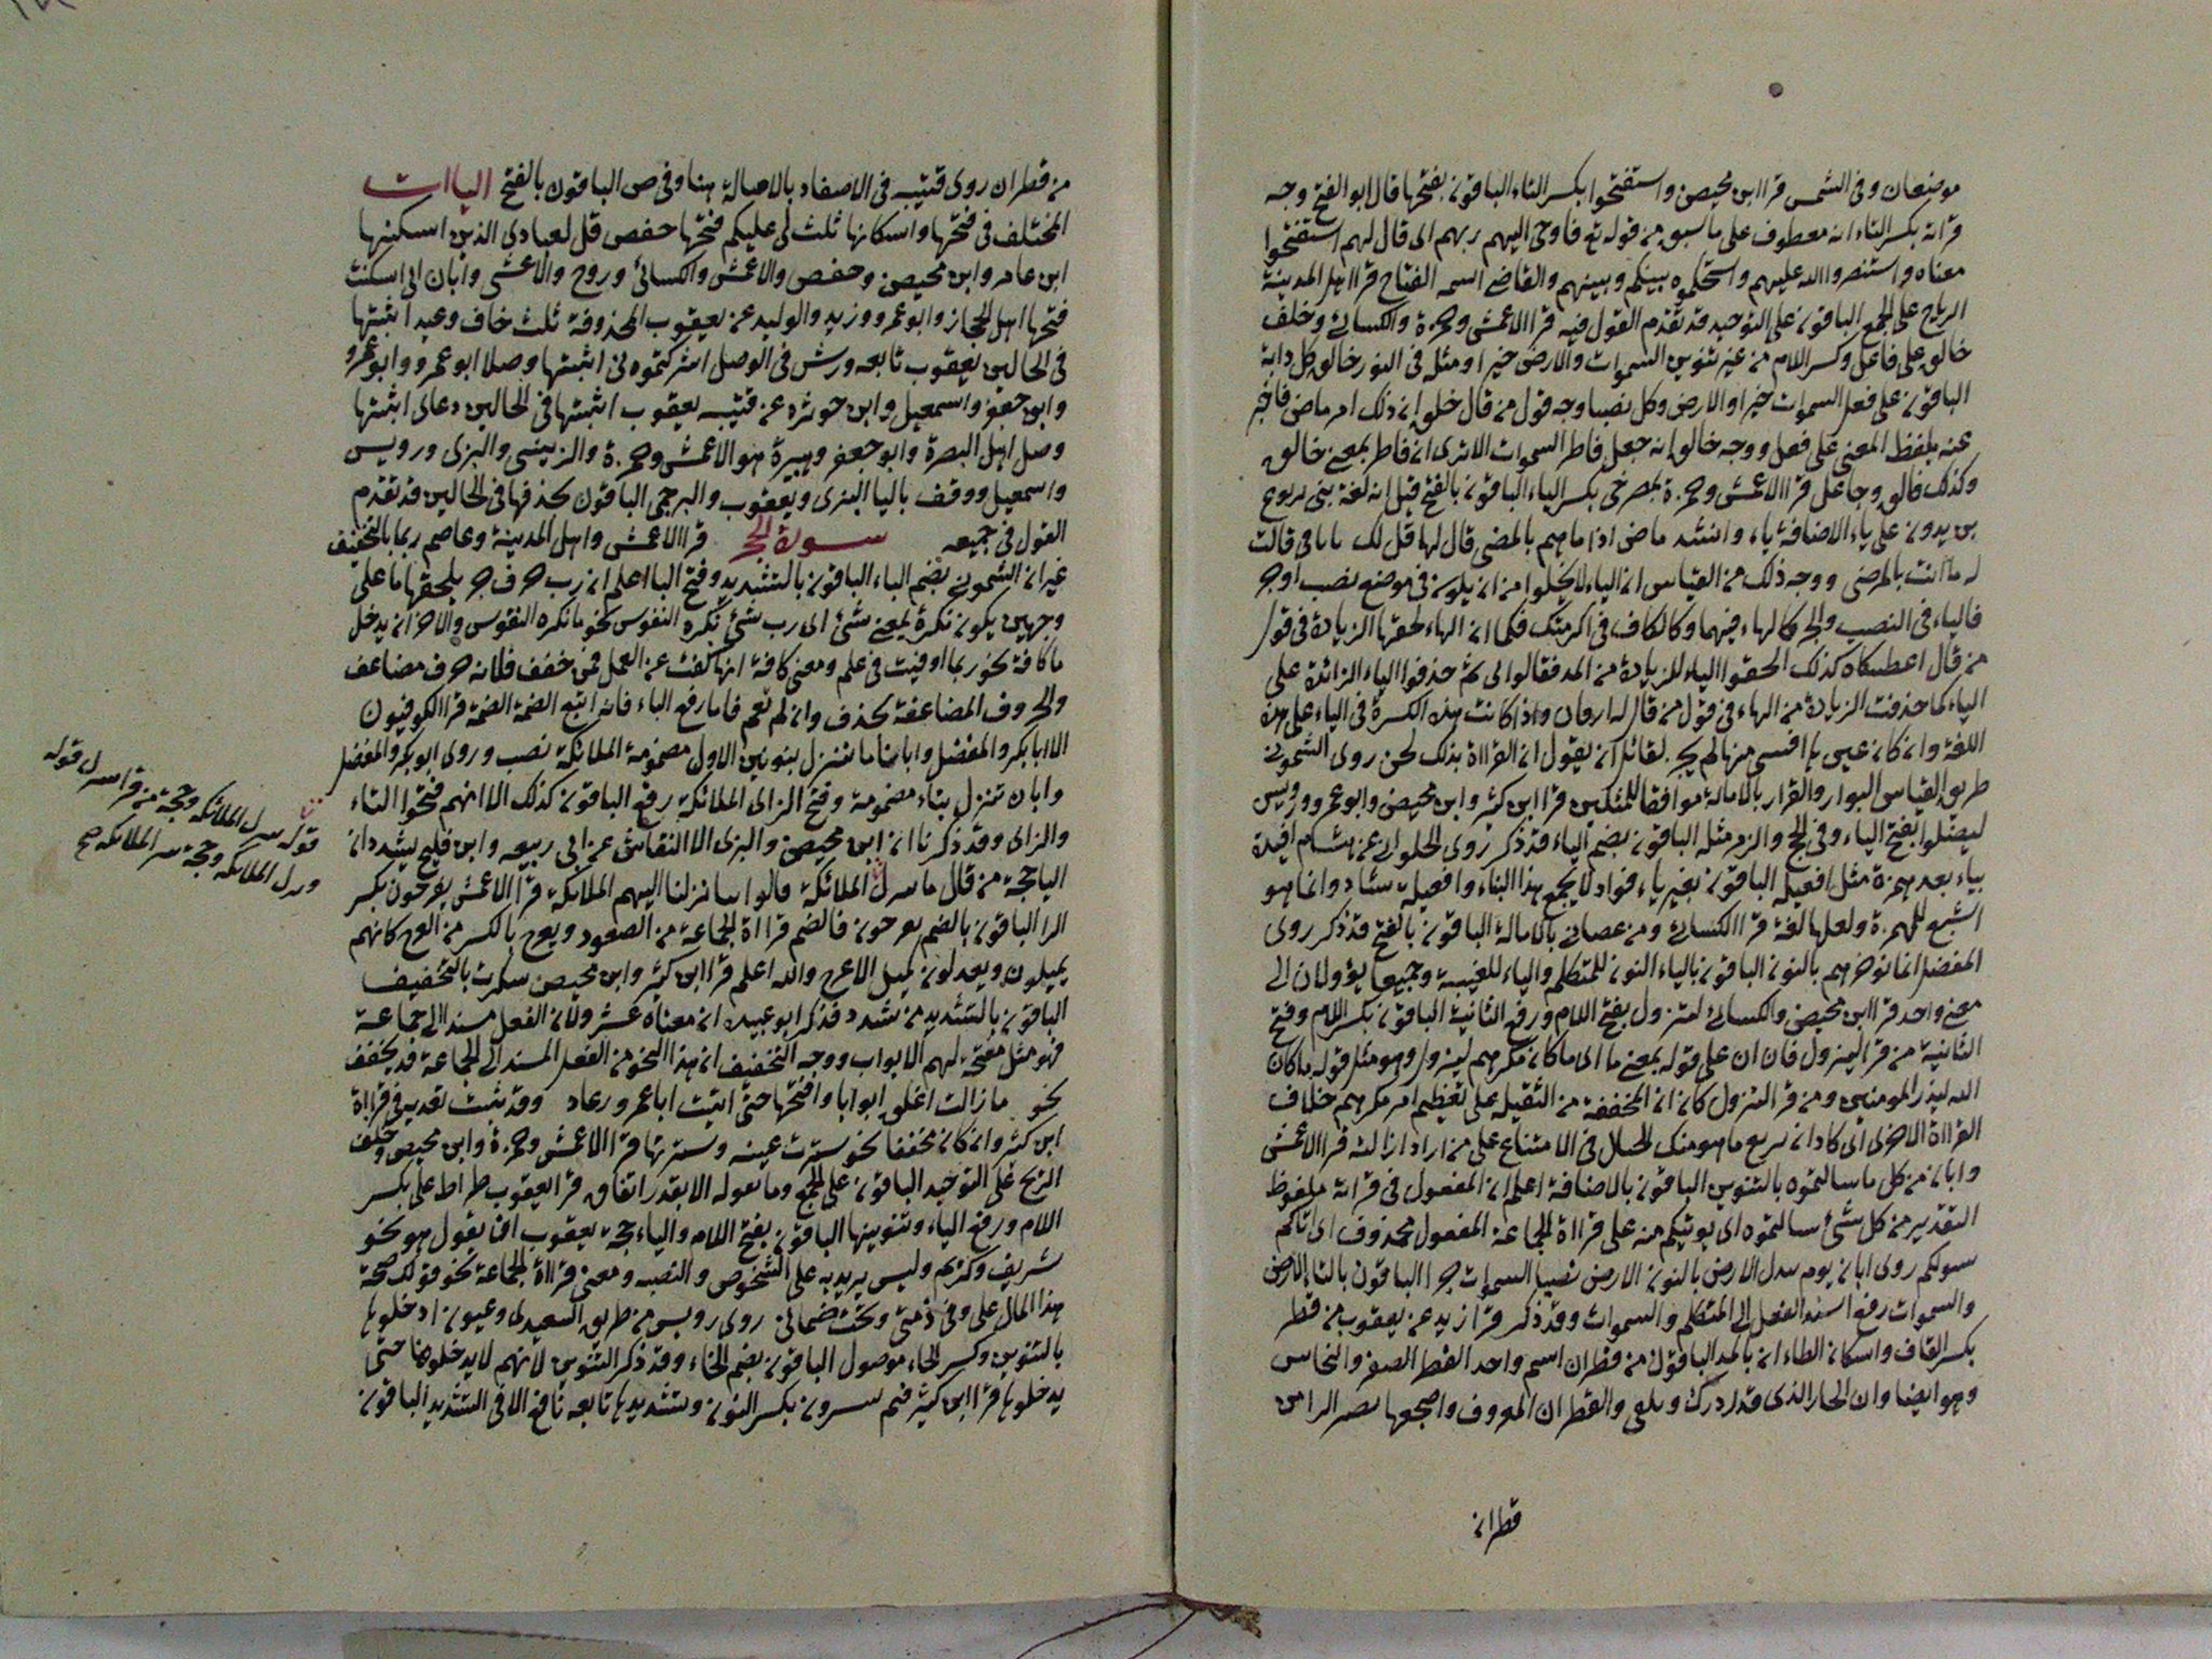 موضعان وفى الشمس قرا ابن محيصن واستفتحوا بكسر التاء الباقون بفتحها قال ابو الفتح وجه
قراته بكسر التاء انه معطوف على ما سبق من قوله تع فاوحى اليهم ربهم اى قال لهم استفتحوا
معناه واستنصروا الله عليهم واستحكموه بينكم وبينهم والقاضى اسمه الفتاح قرا اهل المدينة
الرياح على الجمع الباقون على التوحيد قد تقدم القول فيه قرا الاعمش وحمزة والكسائى وخلف
خالق على فاعل وكسر اللام من غير تنوين السموات والارض خيرا ومثله فى النور خالق كل دابة
الباقون على فعل السموات خيرا والارض وكل نصبا وجه قول من قال خلق ان ذلك امر ماض فاخبر
عنه بلفظ المعنى على فعل ووجه خالق انه جعل فاطر السموات الا ترى ان فاطر بمعنى خالق
وكذلك فالق وجاعل قرا الاعمش وحمزة بمصرخى بكسر الياء الباقون بالفتح قيل انه لغة بنى يربوع
يزيدون على ياء الاضافة ياء وانشد ماض اذا ما هم بالمضى قال لها هل لك يا تا فى قالت
له ما انت بالمرضى ووجه ذلك من القياس ان الياء لا يخلوا من ان يكون فى موضع نصب او جر
فالياء فى النصب والجر كالهاء فيهما وكالكاف فى اكرمتك فكما ان الهاء لحقتها الزيادة فى قول
من قال اعطيتكاه كذلك الحقوا الياء للزيادة من المد فقالوا لى ثم حذفوا الياء الزائدة على
الياء كما حذفت الزيادة من الهاء فى قول من قال له ارقان واذا كانت هذه الكسرة فى الياء على هذه
اللغة وان كان غيرها افشى منها لم يجز لقائل ان يقول ان القراة بذلك لحن روى الشمونى
طريق القياس البوار والقرار بالامالة موافقا للمثكين قرا ابن كثير وابن محيصن وابو عمرو ورويس
ليضلوا بفتح الياء وفى الحج والزمر مثله الباقون بضم الياء قد ذكر روى الحلوانى عن هشام افئيدة
بياء بعد همزة مثل افعيلة الباقون بغير ياء فؤاد لا يجمع هذا البناء وافعيلة شاذ وانما هو
اشبع للهمزة ولعلها لغة قرا الكسائى ومن عصانى بالامالة الباقون بالفتح قد ذكر روى
المفضل انما نؤخرهم بالنون الباقون بالياء النون للمتكلم والياء للغيبة وجميعا يؤولان الى
معنى واحد قرا ابن محيصن والكسائى لتزول بفتح اللام ورفع الثانية الباقون بكسر اللام وفتح
الثانية من قرا ليزول فان ان على قوله بمعنى ما اى ما كان مكرهم ليزول وهو مثل قوله ما كان
الله ليذر المومنين ومن قرا لتزول كان ان المخففة من الثقيلة على تعظيم امر مكرهم خلاف
القراة الاخرى اى كاد ان يزيع ما هو منك الجبال فى الامتناع على من اراد ازالته قرا الاعمش
وابان من كل ما سالتموه بالتنوين الباقون بالاضافة اعلم ان المفعول فى قراته ملفوظ
التقدير من كل شئ سالتموه اى يوتيكم منه على قراة الجماعة المفعول محذوف اى اتاكم
سولكم روى ابان يوم نبدل الارض بالنون الارض نصبا السموات جرا الباقون بالتا الارض
والسموات رفع اسند الفعل الى المتكلم والسموات وقد ذكر قرا زيد عن يعقوب من قطر
بكسر القاف واسكان الطاء ان بالمد الباقون من قطران اسم واحد القطر الصفر والنحاس
وهو ايضا وان الحار الذى قد ادرك والقطران المعروف
قطران
من قطران روى قتيبه فى الاصفاد بالامالة هنا وفى ص الباقون بالفتح الياات
المختلف فى فتحها واسكانها ثلث لى عليكم فتحها حفص قل لعبادى الذين اسكنها
ابن عامر وابن محيصن وحفص والاعمش والكسائى وروح والاعشى وابان انى اسكنت
فتحها اهل الحجاز وابو عمرو وزيد والوليد عن يعقوب المحذوفة ثلث خاف وعيد اثبتها
فى الحالين يعقوب تابعه ورش فى الوصل اشركتمونى اثبتها وصلا ابو عمرو وابو عمرو
وابو جعفر واسمعيل وابن حوثره عن قتيبه يعقوب اثبتها فى الحالين دعاى اثبتها
وصل اهل البصرة وابو جعفر وهبيرة هو الاعمش وحمزة والزينبى والبزى ورويس
واسمعيل ووقف باليا البزى ويعقوب والبرجمى الباقون بحذفها فى الحالين قد تقدم
القول فى جميعه سورة الحجر قرا الاعمش واهل المدينة وعاصم ربما بالتخفيف
غير ان الشمونى بضم الباء الباقون بالتشديد وفتح الباء اعلم ان رب حرف جر يلحقها ما على
وجهين يكون نكرة بمعنى شئ اى رب شئ تكره النفوس نحو ما تكره النفوس والاخر ان يدخل
ما كافة نحو ربما اوفيت فى علم ومعنى كافة انها كفت عن العمل فمن خفف فلانه حرف مضاعف
والحروف المضاعفة تحذف وان لم تعم فاما رفع الباء فانه اتبع الضمة الضمة قرا الكوفيون
الا ابا بكر والمفضل وابانا ما ننزل بنونين الاول مضمومة الملائكة نصب وروى ابو بكر والمفضل
وابان تنزل بتاء مضمومة وفتح الزاى الملائكة رفع الباقون كذلك الا انهم فتحوا التاء
والزاى وقد ذكرنا ان ابن محيصن والبزى الا النقاش عن ابى ربيعه وابن فليح يشددان
اليا حجة من قال ما ننزل الملائكة قالوا انزلنا اليهم الملائكة قرا الاعمش يعرجون بكسر
الرا الباقون بالضم يعرجون فالضم قراة الجماعة من الصعود ويعرج بالكسر من العرج كانهم
يميلون ويعدلون كميل الاعرج والله اعلم قرا ابن كثير وابن محيصن سكرت بالتخفيف
الباقون بالتشديد من شدد فذكر ابو عبيده ان معناه غشر ولان الفعل مسند الى جماعة
فهو مثل مفتحة لهم الابواب ووجه التخفيف ان هذا النحو من الفعل المسند الى الجماعة قد يخفف
نحو ما زالت اغلق ابوابا وافتحها حتى اتيت ابا عمرو رعاد وقد يثبت تقديره فى قراة
ابن كثير وان كان مخففا نحو سترت عينه وسترتها قرا الاعمش وحمزة وابن محيصن وخلف
الريح على التوحيد الباقون على الجمع وما ننزله الا بقدر اتفاق قرا يعقوب صراط على بكسر
اللام ورفع الياء وتنوينها الباقون بفتح اللام والياء حجة يعقوب ان يقول هو نحو
شريف وكريم وليس يريد به على الشخوص والنصبه ومعنى قراة الجماعة نحو قولك صحة
هذا المال على وفى ذمتى وتحت ضمانى روى رويس من طريق السعيدى وعيون ادخلوها
بالتنوين وكسر الخاء موصول الباقون بضم الخاء وقد ذكر التنوين لانهم لا يدخلوها حتى
يدخلوها قرا ابن كثير فبم تبشرون بكسر النون وتشديدها تابعه نافع الا فى التشديد الباقون
قوله ننزل الملائكة وحجة من قرا تنزل قوله
ونزل الملائكة وحجة الملائكة صح